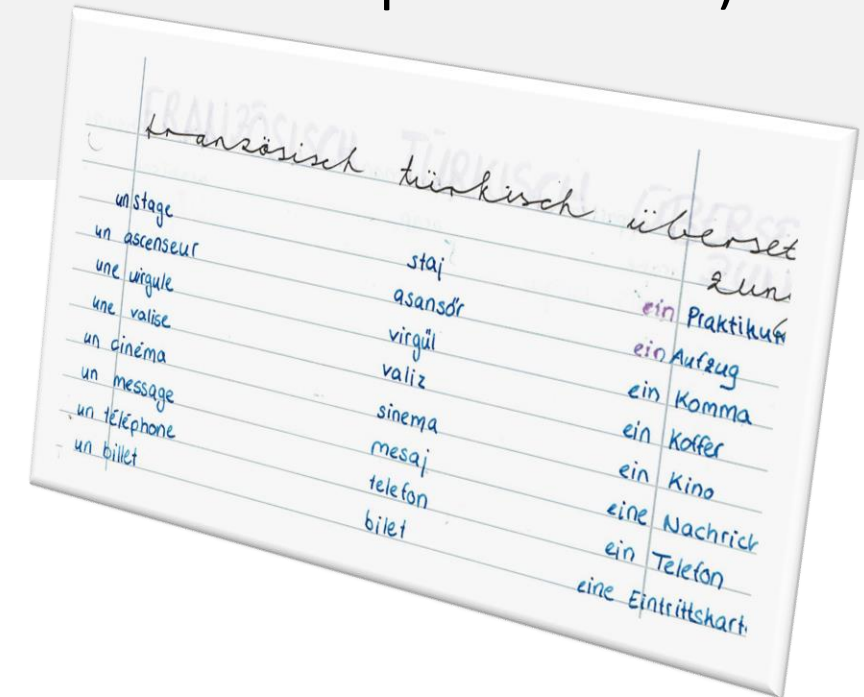 französisch türkisch überset
zun
un stage staj ein Praktikum
un ascenseur asansör ein Aufzug
une virgule virgül ein Komma
une valise valiz ein Koffer
un cinéma sinema ein Kino
un message mesaj eine Nachrich
un téléphone telefon ein Telefon
un billet bilet eine Eintrittskart